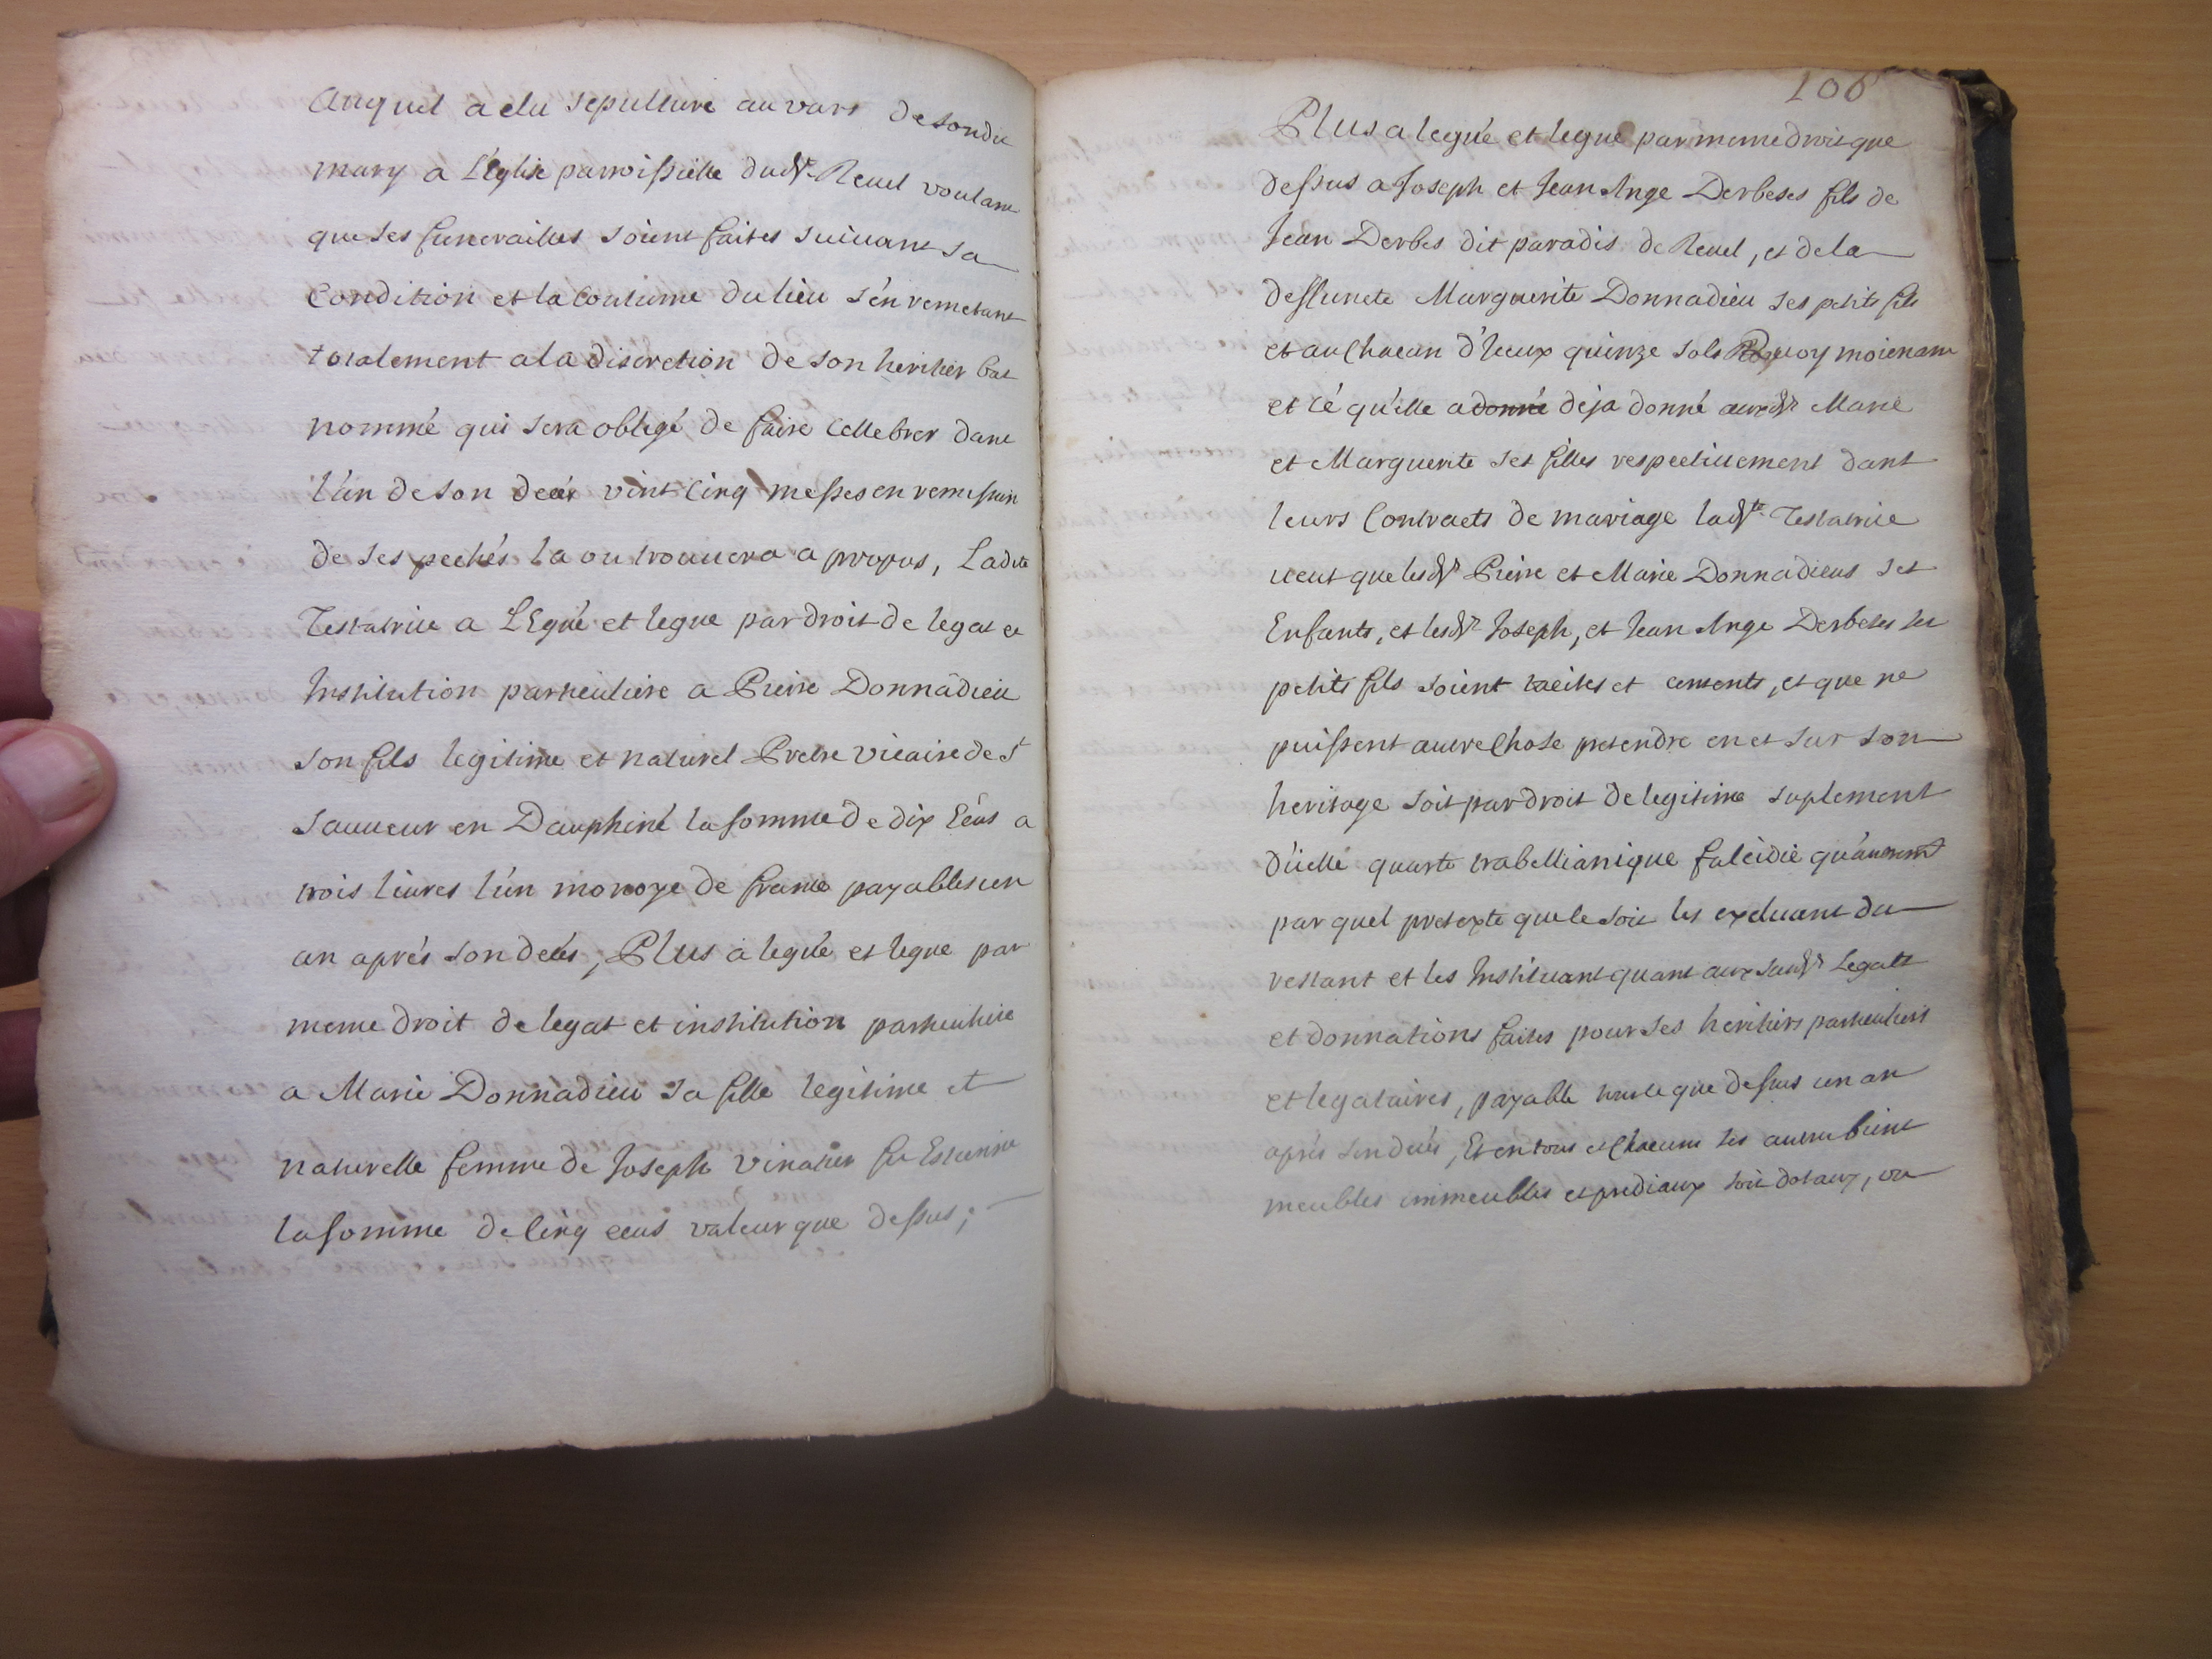 auquel a elu sepulture au vars de son dit
mary a l'Eglise parroissielle dud.t Revel voulant
que ses funerailles soient faites suivant sa
Condition et la Coutume du lieu s'en remetant
totalement a la discretion de son heritier bas
nommé qui sera obligé de faire Cellebrer dans
l'an de son deces vint Cinq messes en remission
de ses pechés la ou trouvera a propos, Ladite
Testatrice a LEgué et legue par droit de legat et
Institution particuliere a Pierre Donnadieu
son fils legitime et naturel Pretre vicaire de S.t
Sauveur en Dauphiné la somme de dix Ecus a
trois livres l'un monoye de france payables un
an aprés son deces, Plus a legué et legue par
meme droit de legat et institution particuliere
a Marie Donnadieu sa fille legitime et
naturelle femme de Joseph vinatier fu Estienne
la somme de Cinq ecus valeur que dessus;
106
Plus a legué et legue par meme droit que
dessus a Joseph et Jean Ange Derbeses fils de
Jean Derbes dit paradis de Revel, et de la
deffunete Marguerite Donnadieu ses petits fils
et au Chacun d'Iceux quinze sols moienant
et cé qu'elle a donné deja donné auxd.s Marie
et Marguerite ses filles respectivement dant
leurs Contracts de mariage lad.te Testatrice
veut que lesd.s Pierre et Marie Donnadieus ses
Enfants, et lesd.s Joseph, et Jean Ange Derbeses ses
petits fils soient tacites et contents, et que ne
puissent autre Chose pretendre en et sur son
heritage soit par droit de legitime suplement
d'icelle quarte trabellianique falcidie qu'autrem.t
par quel pretexte que le soit les excluant du
restant et les Instituant quant aux susd.s Legats
et donnations faites pour ses heritiers particuliers
et legataires, payable tout le que dessus un an
aprés son deces, Et en tous et Chacuns ses autres biens
meubles immeubles et prediaux soit dotaux, ou